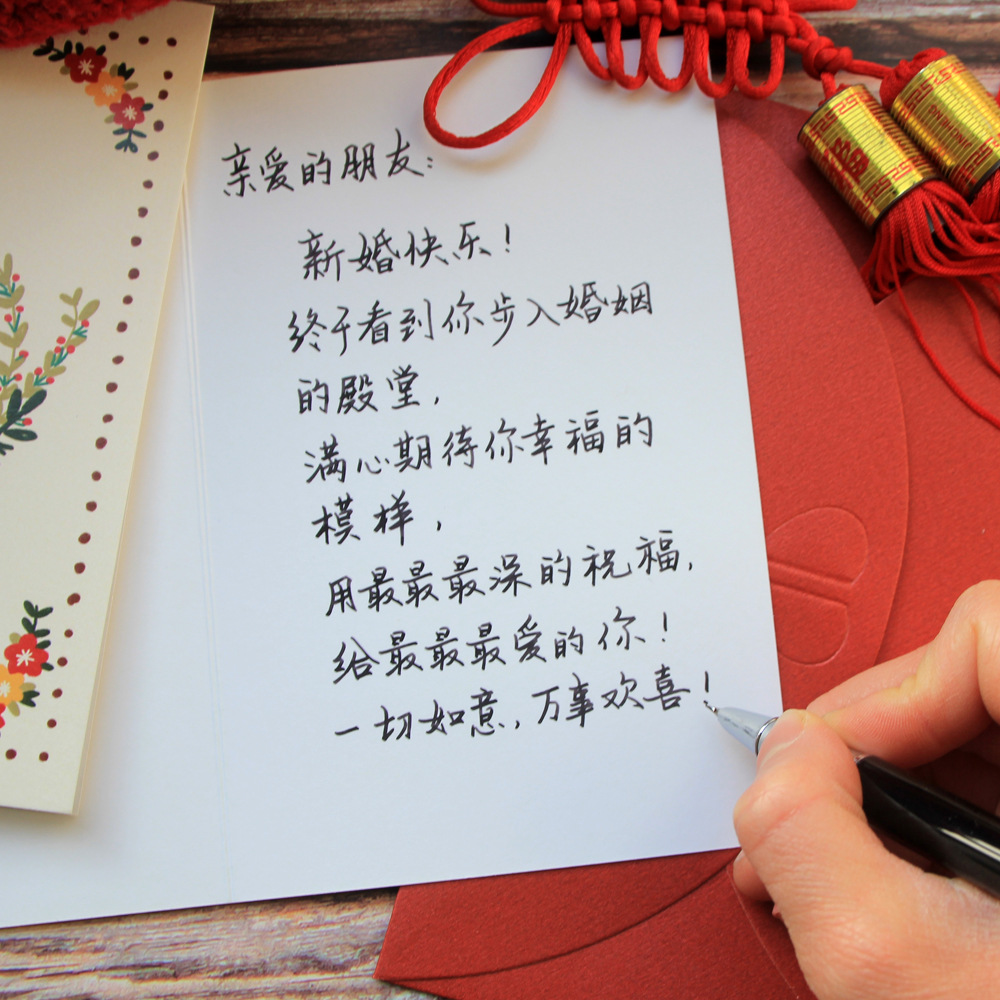 亲爱的朋友：
新婚快乐！
终于看到你步入婚姻
的殿堂，
满心期待你幸福的
模样，
用最最最深的祝福，
给最最最爱的你！
一切如意，万事欢喜！